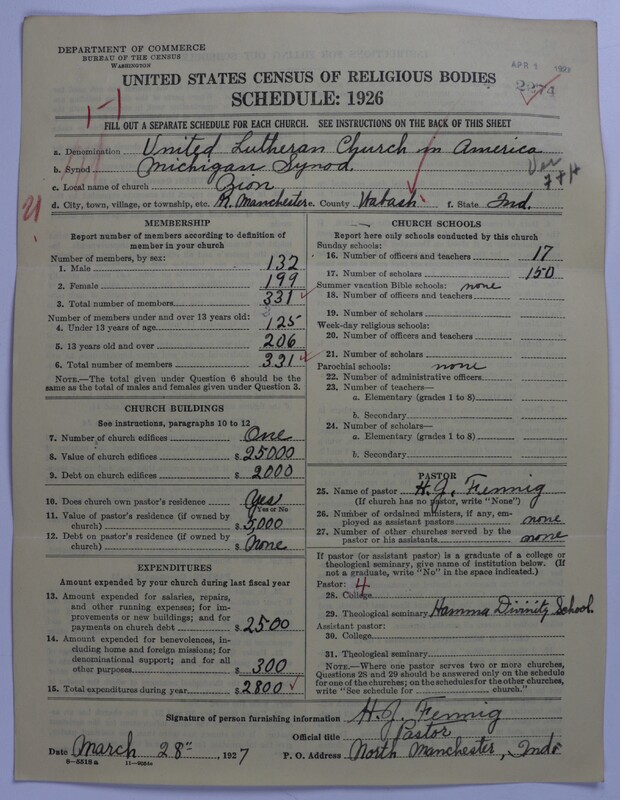 DEPARTMENT OF COMMERCE
BUREAU OF THE CENSUS
WASHINGTON
APR 1927
2274
UNITED STATES CENSUS OF RELIGIOUS BODIES
SCHEDULE: 1926
1-1
FILL OUT A SEPARATE SCHEDULE FOR EACH CHURCH. SEE INSTRUCTIONS ON THE BACK OF THIS SHEET
a. Denomination United Lutheran Church in America
b. Synod Michigan Synod.
Ver
7+H
c. Local name of church Zion
d. City, town, village, or township, etc. N. Manchester e. County Wabash f. State Ind.
MEMBERSHIP
Report number of members according to definition of
member in your church
Number of members, by sex:
1. Male 132
2. Female 199
3. Total number of members 331
Number of members under and over 13 years old:
4. Under 13 years of age 125
5. 13 years old and over 206
6. Total number of members 331
NOTE.—The total given under Question 6 should be the
same as the total of males and females given under Question 3.
CHURCH BUILDINGS
See instructions, paragraphs 10 to 12
7. Number of church edifices One
8. Value of church edifices $ 25000
9. Debt on church edifices $ 2000
10. Does church own pastor's residence Yes
Yes or No
11. Value of pastor's residence (if owned by
church) $ 5,000
12. Debt on pastor's residence (if owned by
church) $ None
EXPENDITURES
Amount expended by your church during last fiscal year
13. Amount expended for salaries, repairs,
and other running expenses; for im-
provements or new buildings; and for
payments on church debt $ 2500
14. Amount expended for benevolences, in-
cluding home and foreign missions; for
denominational support; and for all
other purposes $ 300
15. Total expenditures during year $ 2800
CHURCH SCHOOLS
Report here only schools conducted by this church
Sunday schools:
16. Number of officers and teachers 17
17. Number of scholars 150
Summer vacation Bible schools: none
18. Number of officers and teachers
19. Number of scholars
Week-day religious schools:
20. Number of officers and teachers
21. Number of scholars
Parochial schools: none
22. Number of administrative officers
23. Number of teachers—
a. Elementary (grades 1 to 8)
b. Secondary
24. Number of scholars—
a. Elementary (grades 1 to 8)
b. Secondary
PASTOR
25. Name of pastor H. J. Fennig
(If church has no pastor, write "None")
26. Number of ordained ministers, if any, em-
ployed as assistant pastors none
27. Number of other churches served by the
pastor or his assistants none
If pastor (or assistant pastor) is a graduate of a college or
theological seminary, give name of institution below. (If
not a graduate, write "No" in the space indicated.)
Pastor: 4
28. College
29. Theological seminary Hamma Divinity School.
Assistant pastor:
30. College
31. Theological seminary
NOTE.—Where one pastor serves two or more churches,
Questions 28 and 29 should be answered only on the schedule
for one of the churches; on the schedules for the other churches,
write "See schedule for church."
Signature of person furnishing information H. J. Fennig
Official title Pastor
Date March 28th, 1927 P. O. Address North Manchester, Ind.
8-5518a 11-9084